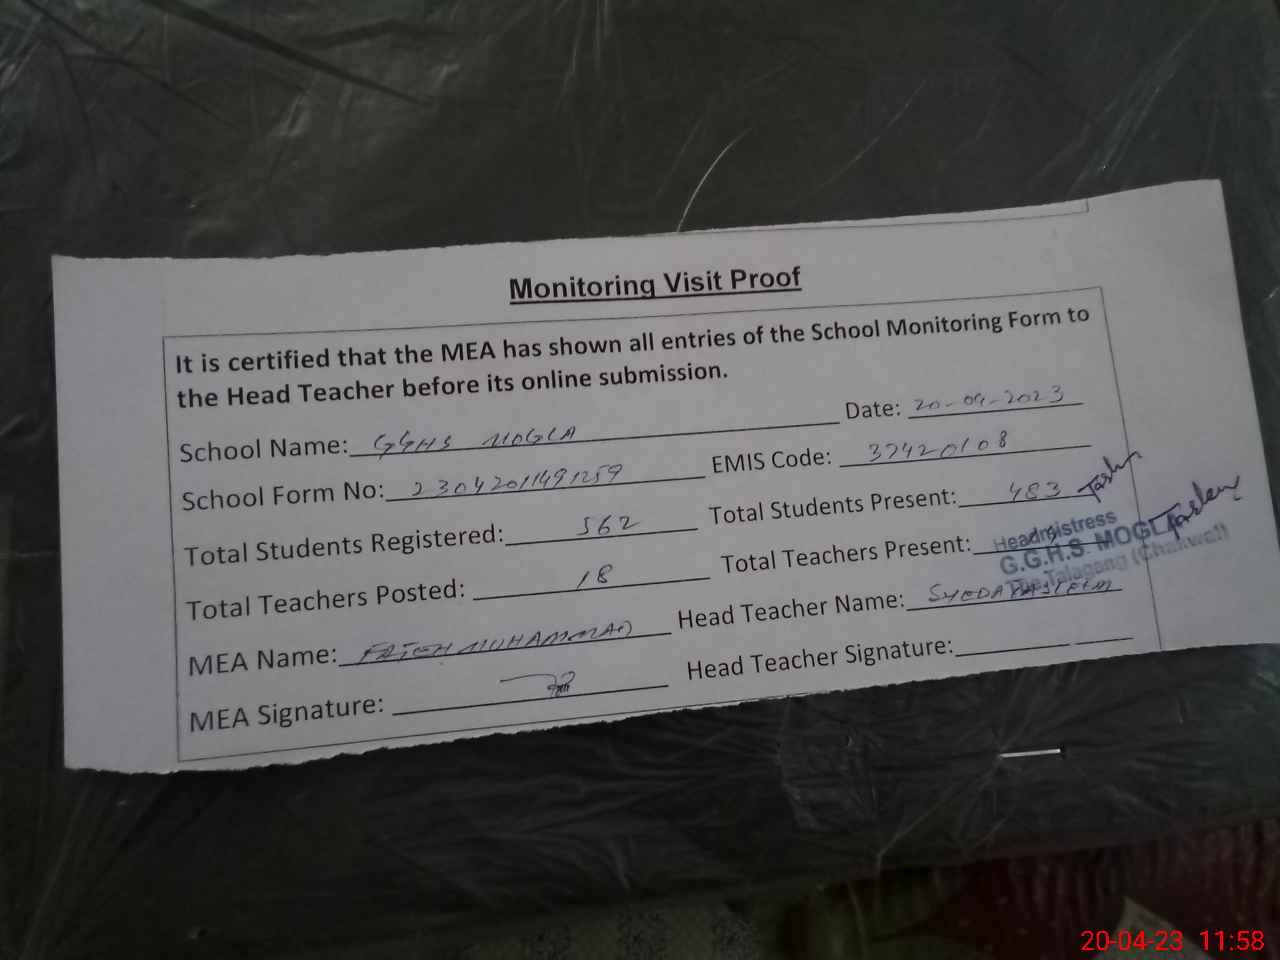 Monitoring Visit Proof
It is certified that the MEA has shown all entries of the School Monitoring Form to
the Head Teacher before its online submission.
School Name: GGHS MOGLA Date: 20-04-2023
School Form No: 23042011491259 EMIS Code: 37420108
Total Students Registered: 562 Total Students Present: 483
Total Teachers Posted: 18 Total Teachers Present:
MEA Name: FATEH MUHAMMAD Head Teacher Name: SYEDA TASLEEM
MEA Signature: Head Teacher Signature:
Headmistress
G.G.H.S. MOGLA
Talagang (Chakwal)
20-04-23 11:58